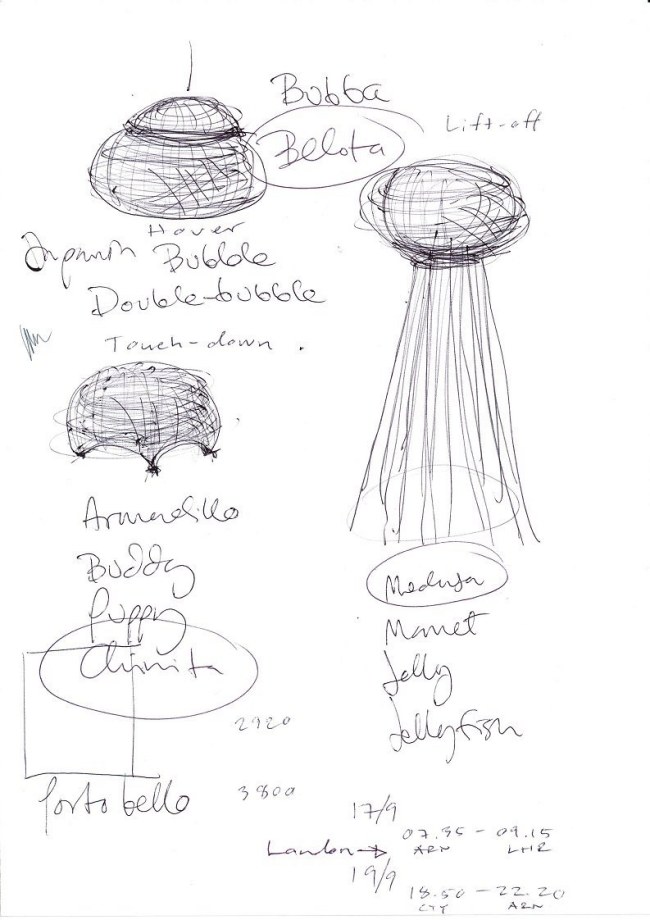 Bubba
Lift-off
Belota
Hover
Bubble
Double-bubble
Touch-down .
Armadillo
Buddy
Puppy
Chinita
2920
Portobello
3800
Medusa
Manet
Jelly
Jellyfish
17/9
07.35 - 09.15
London →
ARN LHR
19/9
18.50 - 22.20
CTY ARN